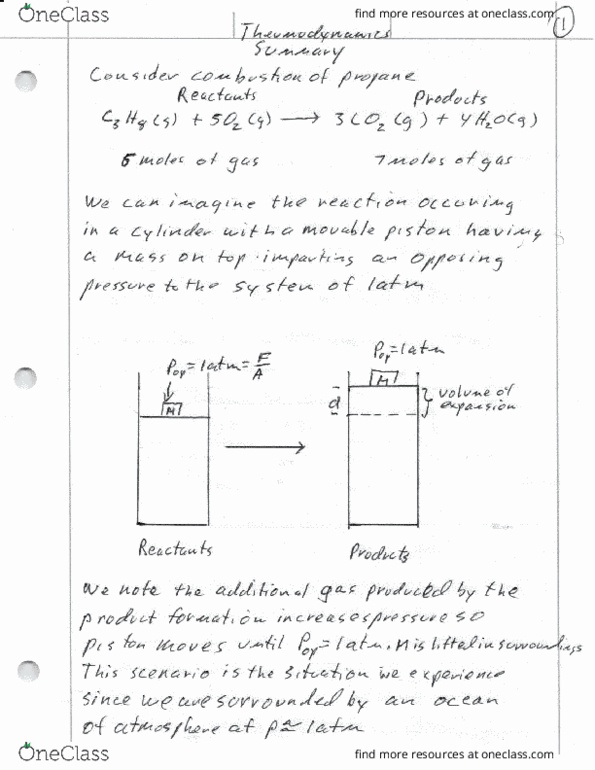 OneClass
find more resources at oneclass.com
1
Thermodynamics
Summary
Consider combustion of propane
Reactants Products
C3H8(g) + 5O2(g) → 3CO2(g) + 4H2O(g)
6 moles of gas 7 moles of gas
We can imagine the reaction occuring
in a cylinder with a movable piston having
a mass on top imparting an opposing
pressure to the system of 1atm
Pop=1atm=F/A
Pop=1atm
M
M
d
volume of
expansion
Reactants
Products
We note the additional gas produced by the
product formation increases pressure so
piston moves until Pop=1atm. M is lifted in surroundings
This scenario is the situation we experience
since we are sorrounded by an ocean
of atmosphere at P≈1atm
OneClass
find more resources at oneclass.com